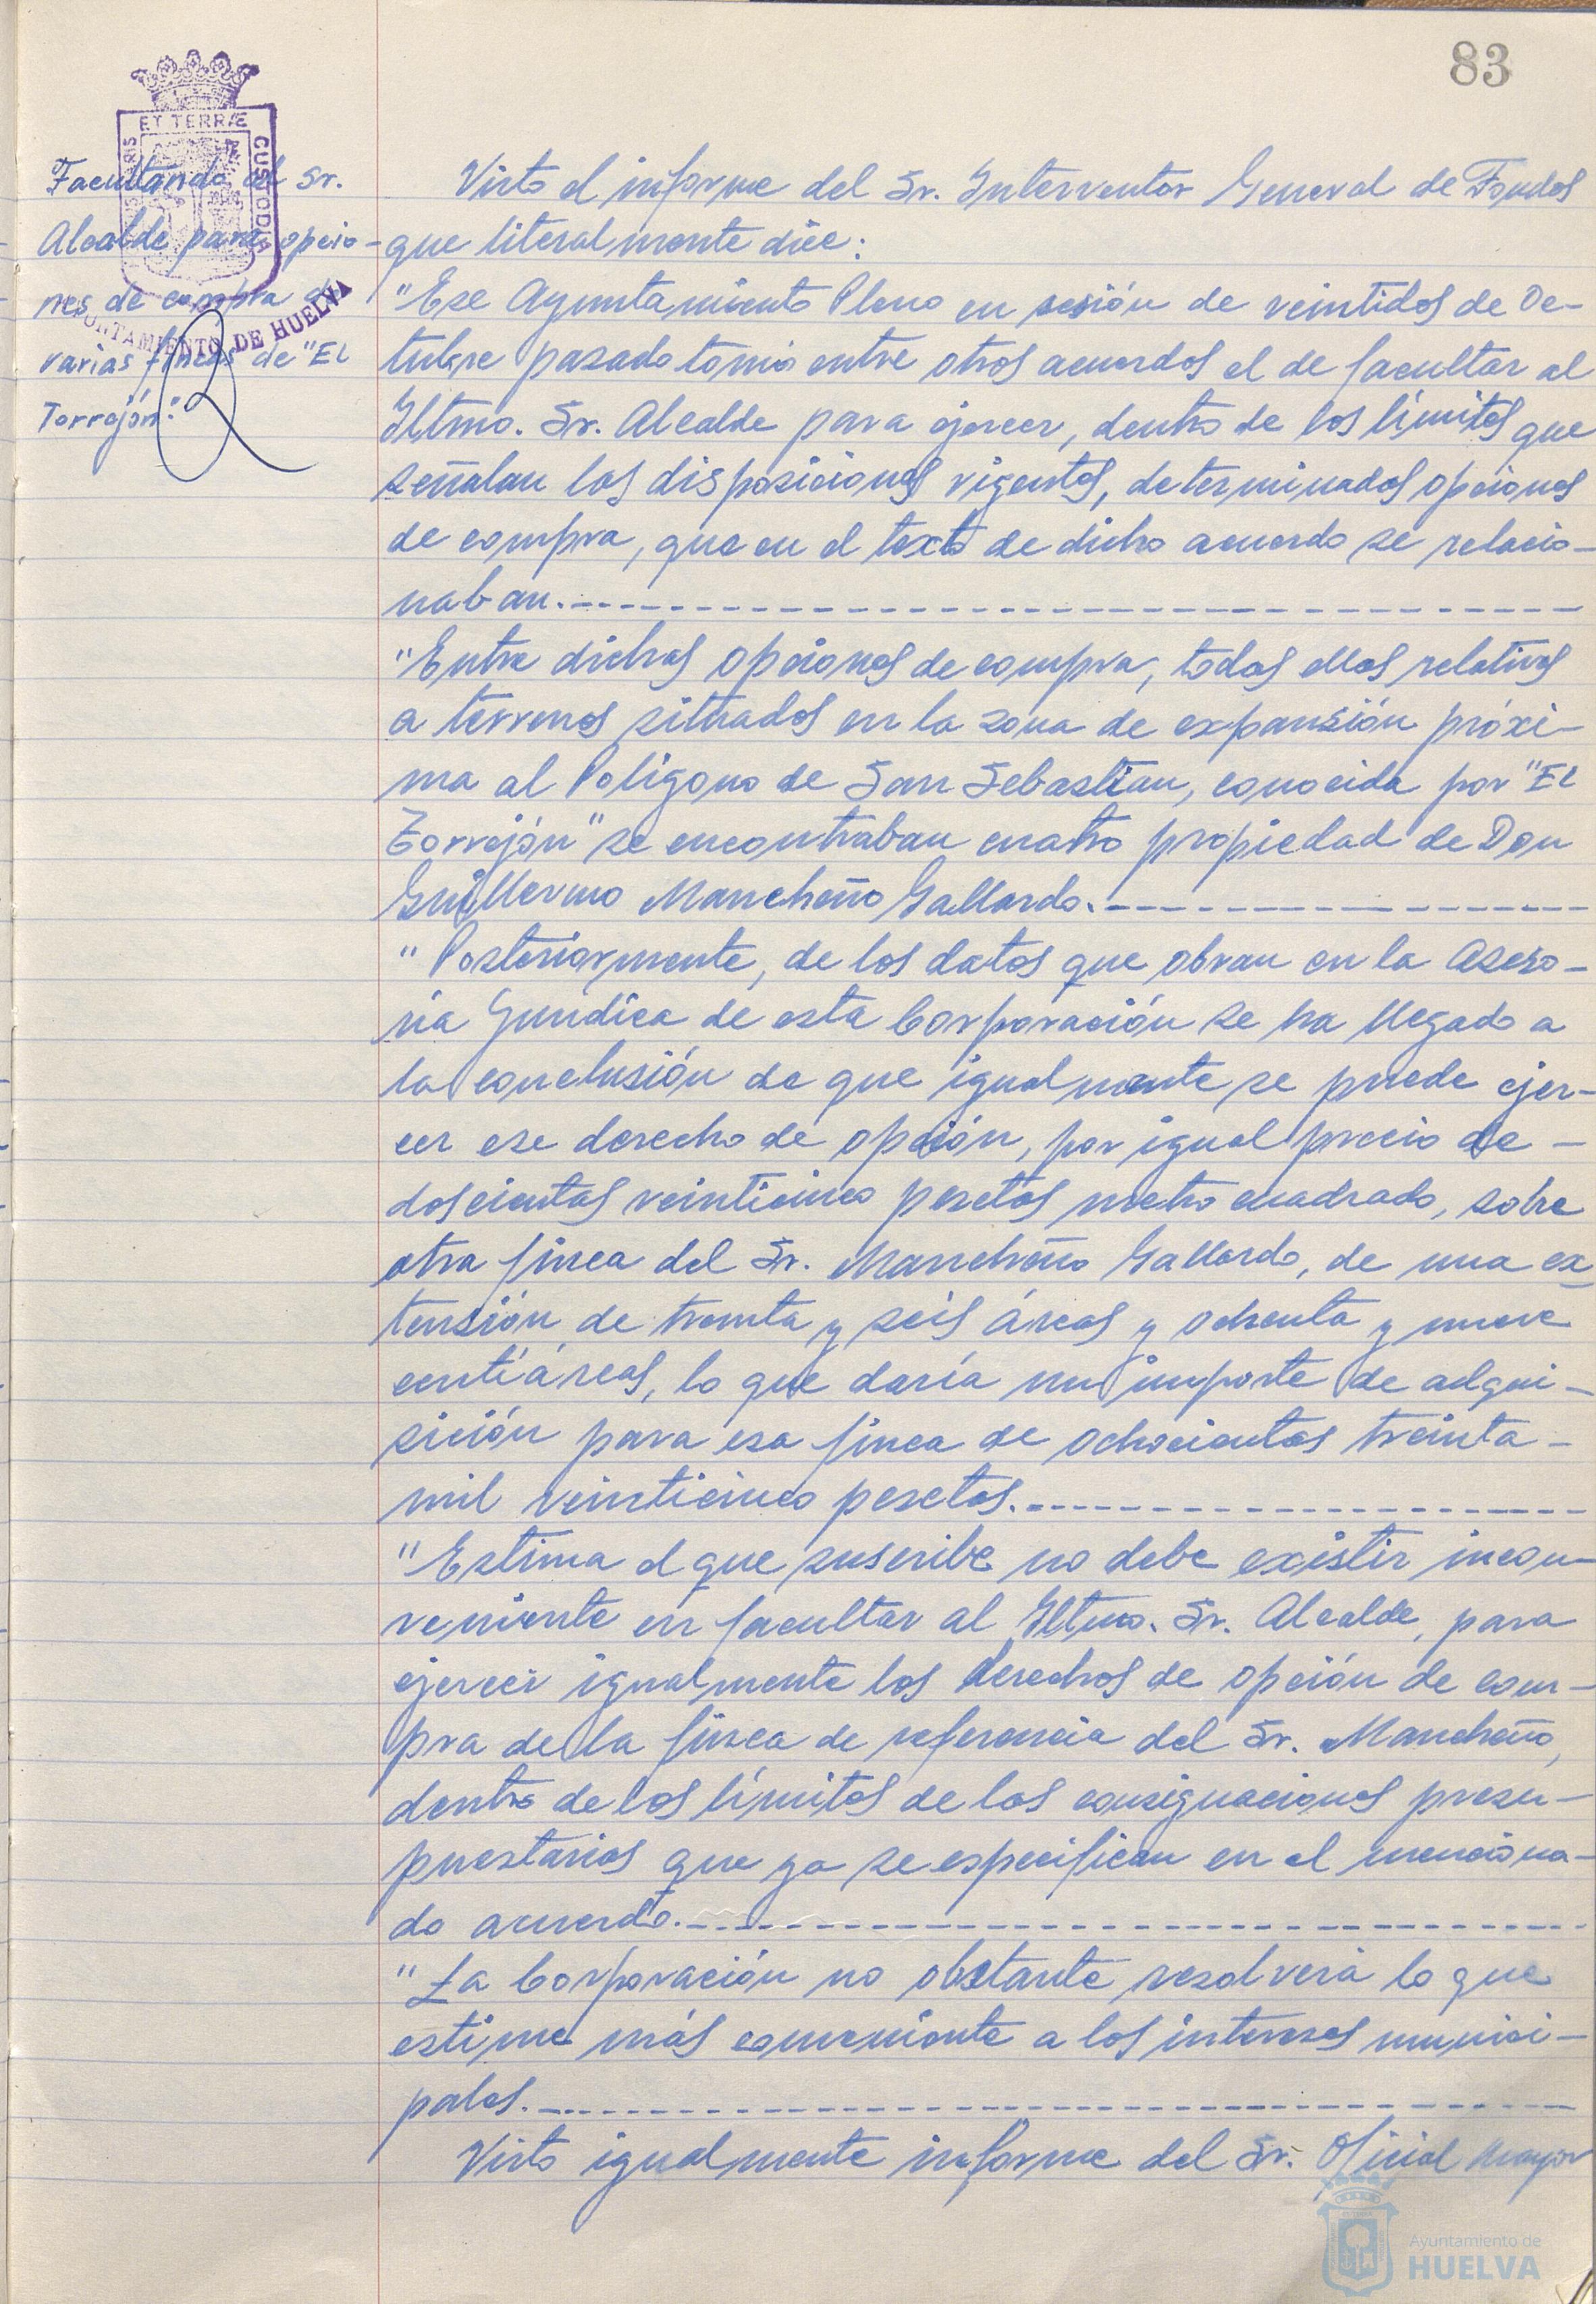 83
ET TERRÆ
CUSTODIA
AYUNTAMIENTO DE HUELVA
Facultando al Sr.
Alcalde para opcio-
nes de compra de
varias fincas de "El
Torrejón".
Visto el informe del Sr. Interventor General de Fondos
que literalmente dice:
"Ese Ayuntamiento Pleno en sesión de veintidos de Oc-
tubre pasado tomó entre otros acuerdos el de facultar al
Iltmo. Sr. Alcalde para ejercer, dentro de los límites que
señalan las disposiciones vigentes, determinadas opciones
de compra, que en el texto de dicho acuerdo se relacio-
naban.
"Entre dichas opciones de compra, todas ellas relativas
a terrenos situados en la zona de expansión próxi-
ma al Polígono de San Sebastian, conocida por "El
Torrejón" se encontraban cuatro propiedad de Don
Guillermo Mancheño Gallardo.
"Posteriormente, de los datos que obran en la Aseso-
ria Juridica de esta Corporación se ha llegado a
la conclusión de que igualmente se puede ejer-
cer ese derecho de opción, por igual precio de -
doscientas veinticinco pesetas metro cuadrado, sobre
otra finca del Sr. Mancheño Gallardo, de una ex
tensión de treinta y seis áreas y ochenta y nueve
centiáreas, lo que daría un importe de adqui-
sición para esa finca de ochocientas treinta -
mil veinticinco pesetas.
"Estima el que suscribe no debe existir incon-
veniente en facultar al Iltmo. Sr. Alcalde, para
ejercer igualmente los derechos de opción de com-
pra de la finca de referencia del Sr. Mancheño,
dentro de los límites de las consignaciones presu-
puestarias que ya se especifican en el menciona-
do acuerdo.
"La Corporación no obstante resolverá lo que
estime más conveniente a los intereses munici-
pales.
Visto igualmente informe del Sr. Oficial Mayor
Ayuntamiento de
HUELVA